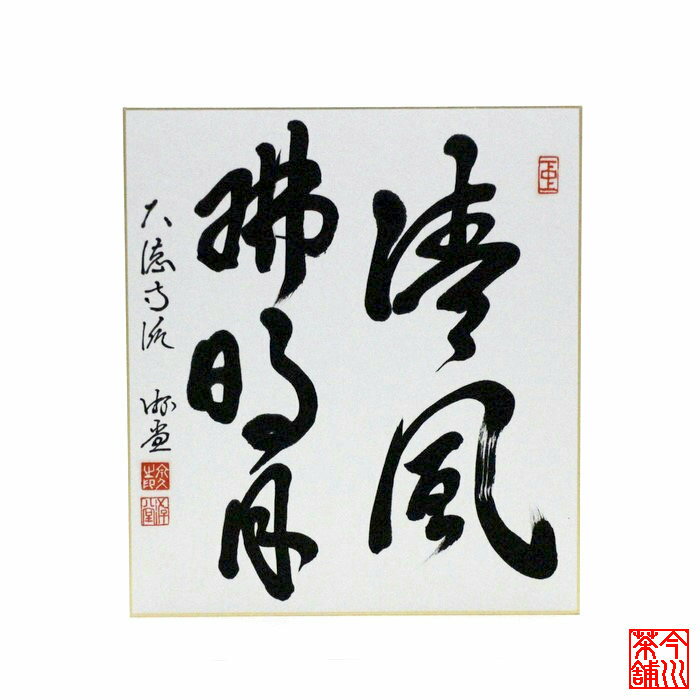 清風
拂明月
大徳寺派
今川
茶舗